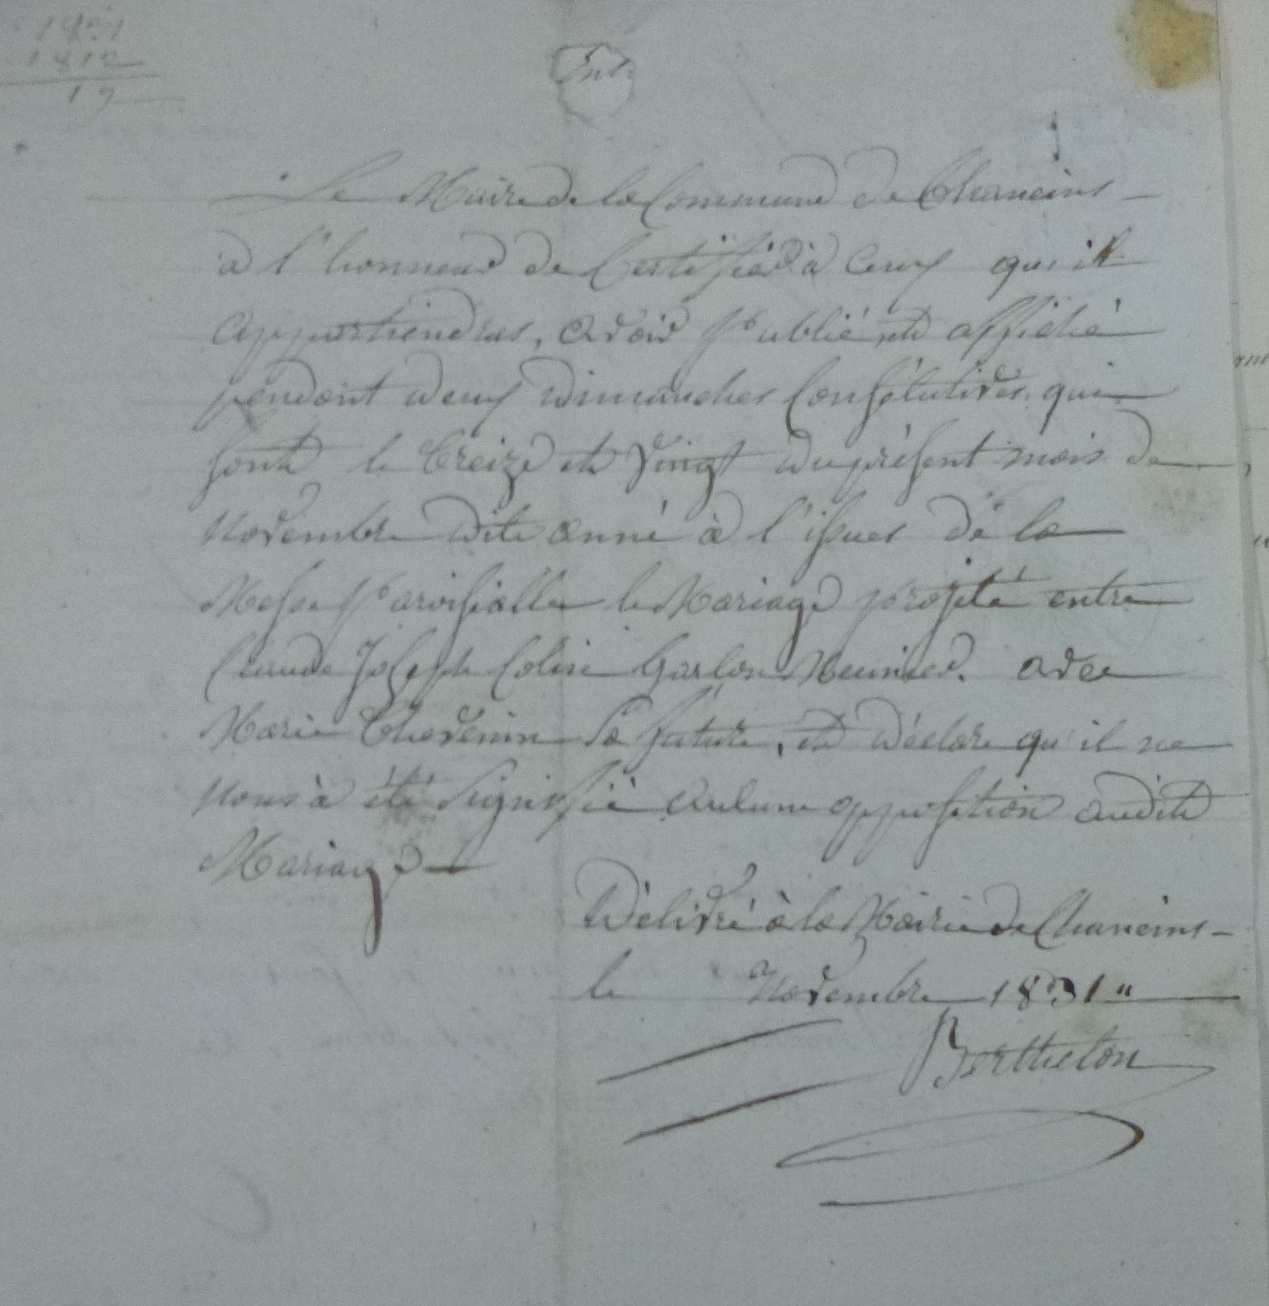 1831
1812
19
Le Maire de la Commune de Chaneins
à l'honneur de Certifiéd à Ceux qu'il
appartiendras, avoir Publié et affiché
pendant deux dimanches Consécutives, qui
sont le treize et Vingt du présent mois de
Novembre dite anné à l'issues dé la
Messe Paroissialle le Mariage projeté entre
Claude Joseph Colin Garlon Meunier. avec
Marie Thevenin Sa future, et déclare qu'il ne
nous à été Signifié aucune opposition audit
Mariage
Délivré à la Mairie de Chaneins
le Novembre 1831 "
Berthelon